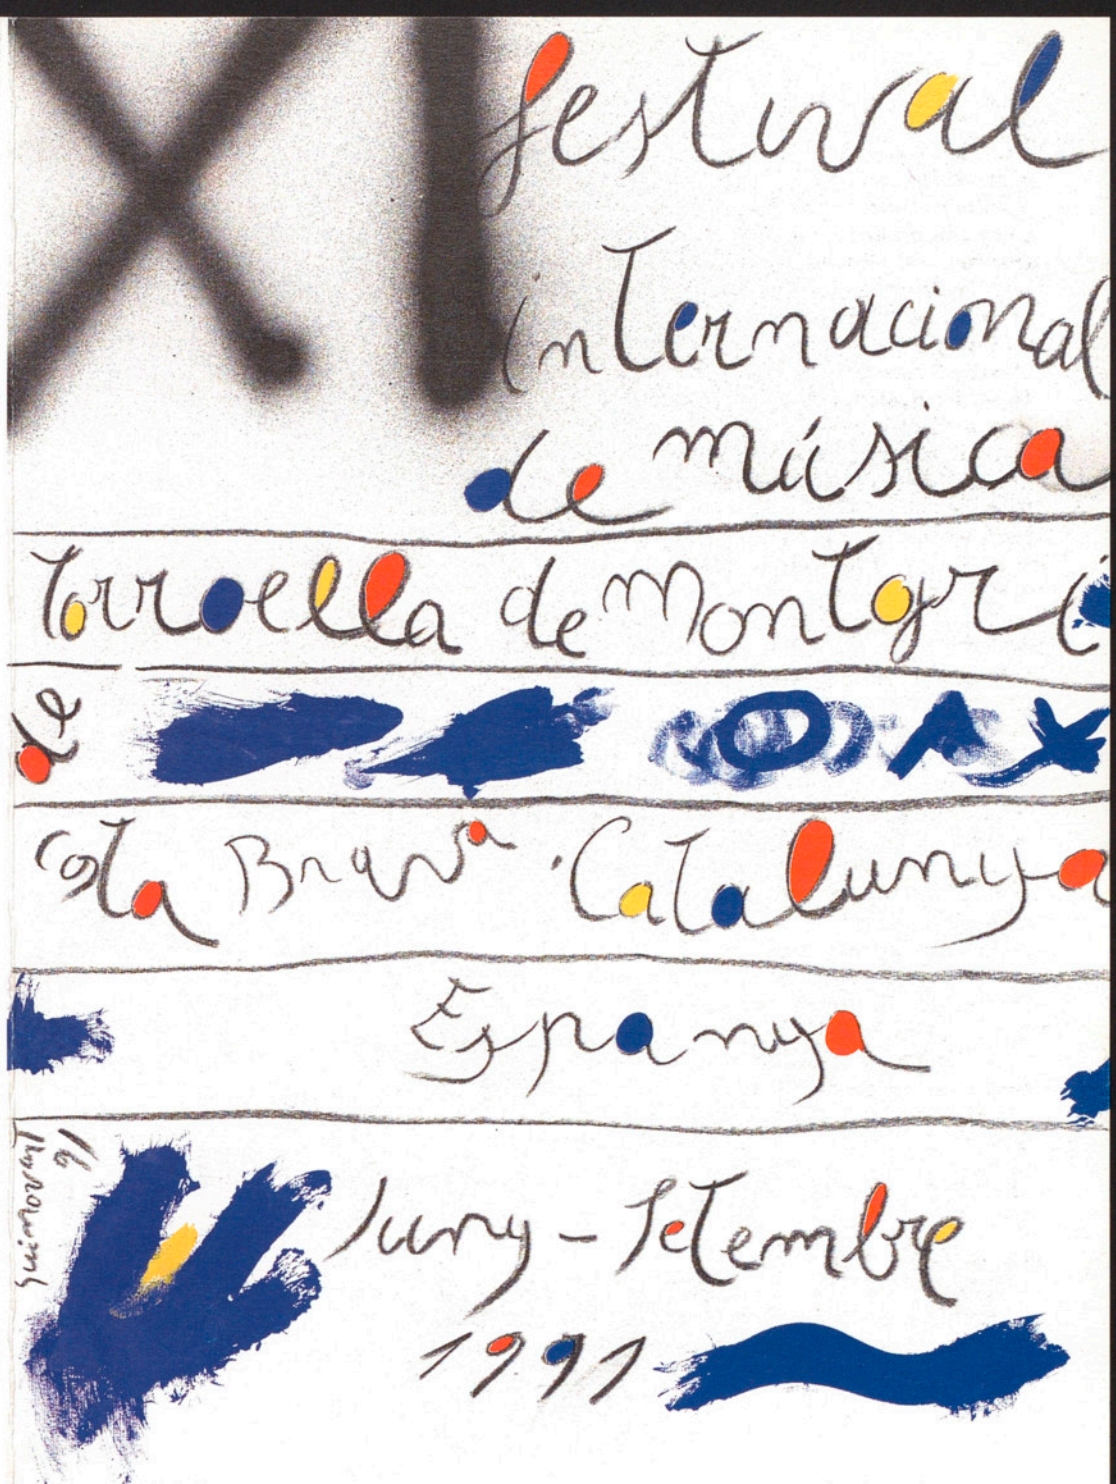 XI festival
internacional
de música
Torroella de Montgrí
de
Costa Brava · Catalunya
Espanya
Juny - Setembre
1991